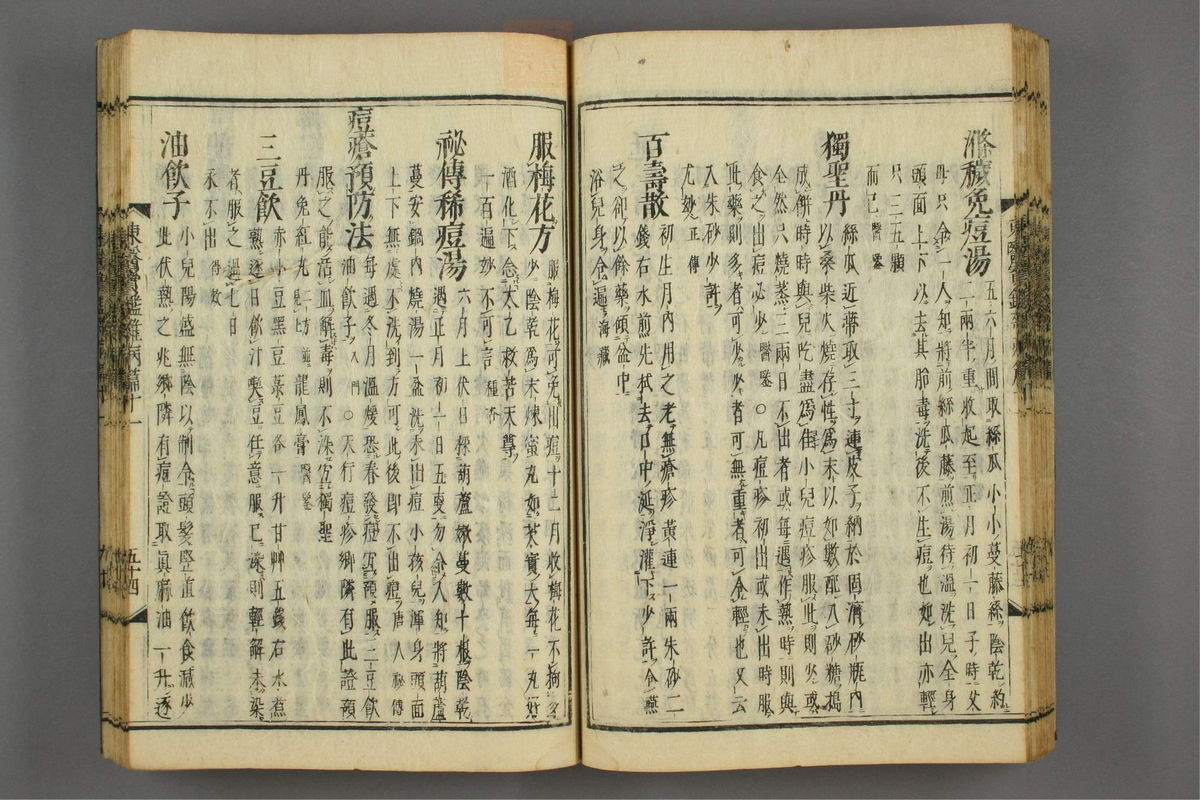 滌穢免痘湯 五六月間取絲瓜小小蔓藤絲陰乾約
二兩半重收起至正月初一日子時父
母只令一人知將前絲瓜藤煎湯待溫洗兒全身
頭面上下以去其胎毒洗後不生痘也如出亦輕
只三五顆
而已醫鑒
獨聖丹 絲瓜近蔕取三寸連皮子納於固濟砂瓶內
以桑柴火燒存性爲末以如數配入砂糖搗
成餠時時與兒吃盡爲佳小兒痘疹服此則少或
全然只燒蒸三兩日不出者或每遇作熱時則與
食之出痘必少醫鑒○凡痘疹初出或未出時服
此藥則多者可少少者可無重者可令輕也又云
入朱砂少許
尤妙正傳
百壽散 初生月內用之老無瘡疹黃連一兩朱砂二
錢右水煎先拭去口中涎淨灌下少許令嚥
之卻以餘藥傾盆中
浴兒身令遍海藏
服梅花方 服梅花可免出痘十二月收梅花不拘多
少陰乾爲末煉蜜丸如芡實大每一丸好
酒化下念太乙救苦天尊
一百遍妙不可言種杏
祕傳稀痘湯 六月上伏日採葫蘆嫩蔓數十根陰乾
遇正月初一日五更勿令人知將葫蘆
蔓安鍋內燒湯一盆洗未出痘小孩兒渾身頭面
上下無處不洗到方可此後卽不出痘唐人祕傳
痘瘡預防法 每遇冬月溫煖恐春發痘宜預服三豆飮
油飮子入門○天行痘疹鄕隣有此證預
服之能活血解毒則不染宜獨聖
丹免紅丸見上方並龍鳳膏醫鑒
三豆飮 赤小豆黑豆菉豆各一升甘艸五錢右水煮
熟逐日飮汁喫豆任意服已染則輕解未染
者服之過七日
永不出得效
油飮子 小兒陽盛無陰以制令頭髮竪直飮食減少
此伏熱之兆鄕隣有痘證取眞麻油一升逐
東醫寶鑑雜病篇十一
五十四